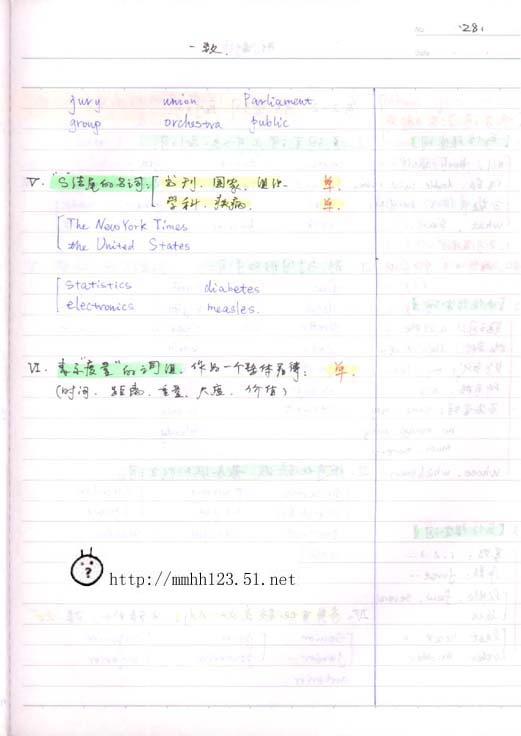 No. 28.
Date
一致.
jury union Parliament
group orchestra public
V. "S"结尾的名词: 书刊、国家、组织 单.
学科、疾病. 单.
The New York Times
the United States
statistics diabetes
electronics measles.
VI. 表示"度量"的词组, 作为一个整体看待: 单.
(时间、距离、重量、大度、价值)
http://mmhh123.51.net